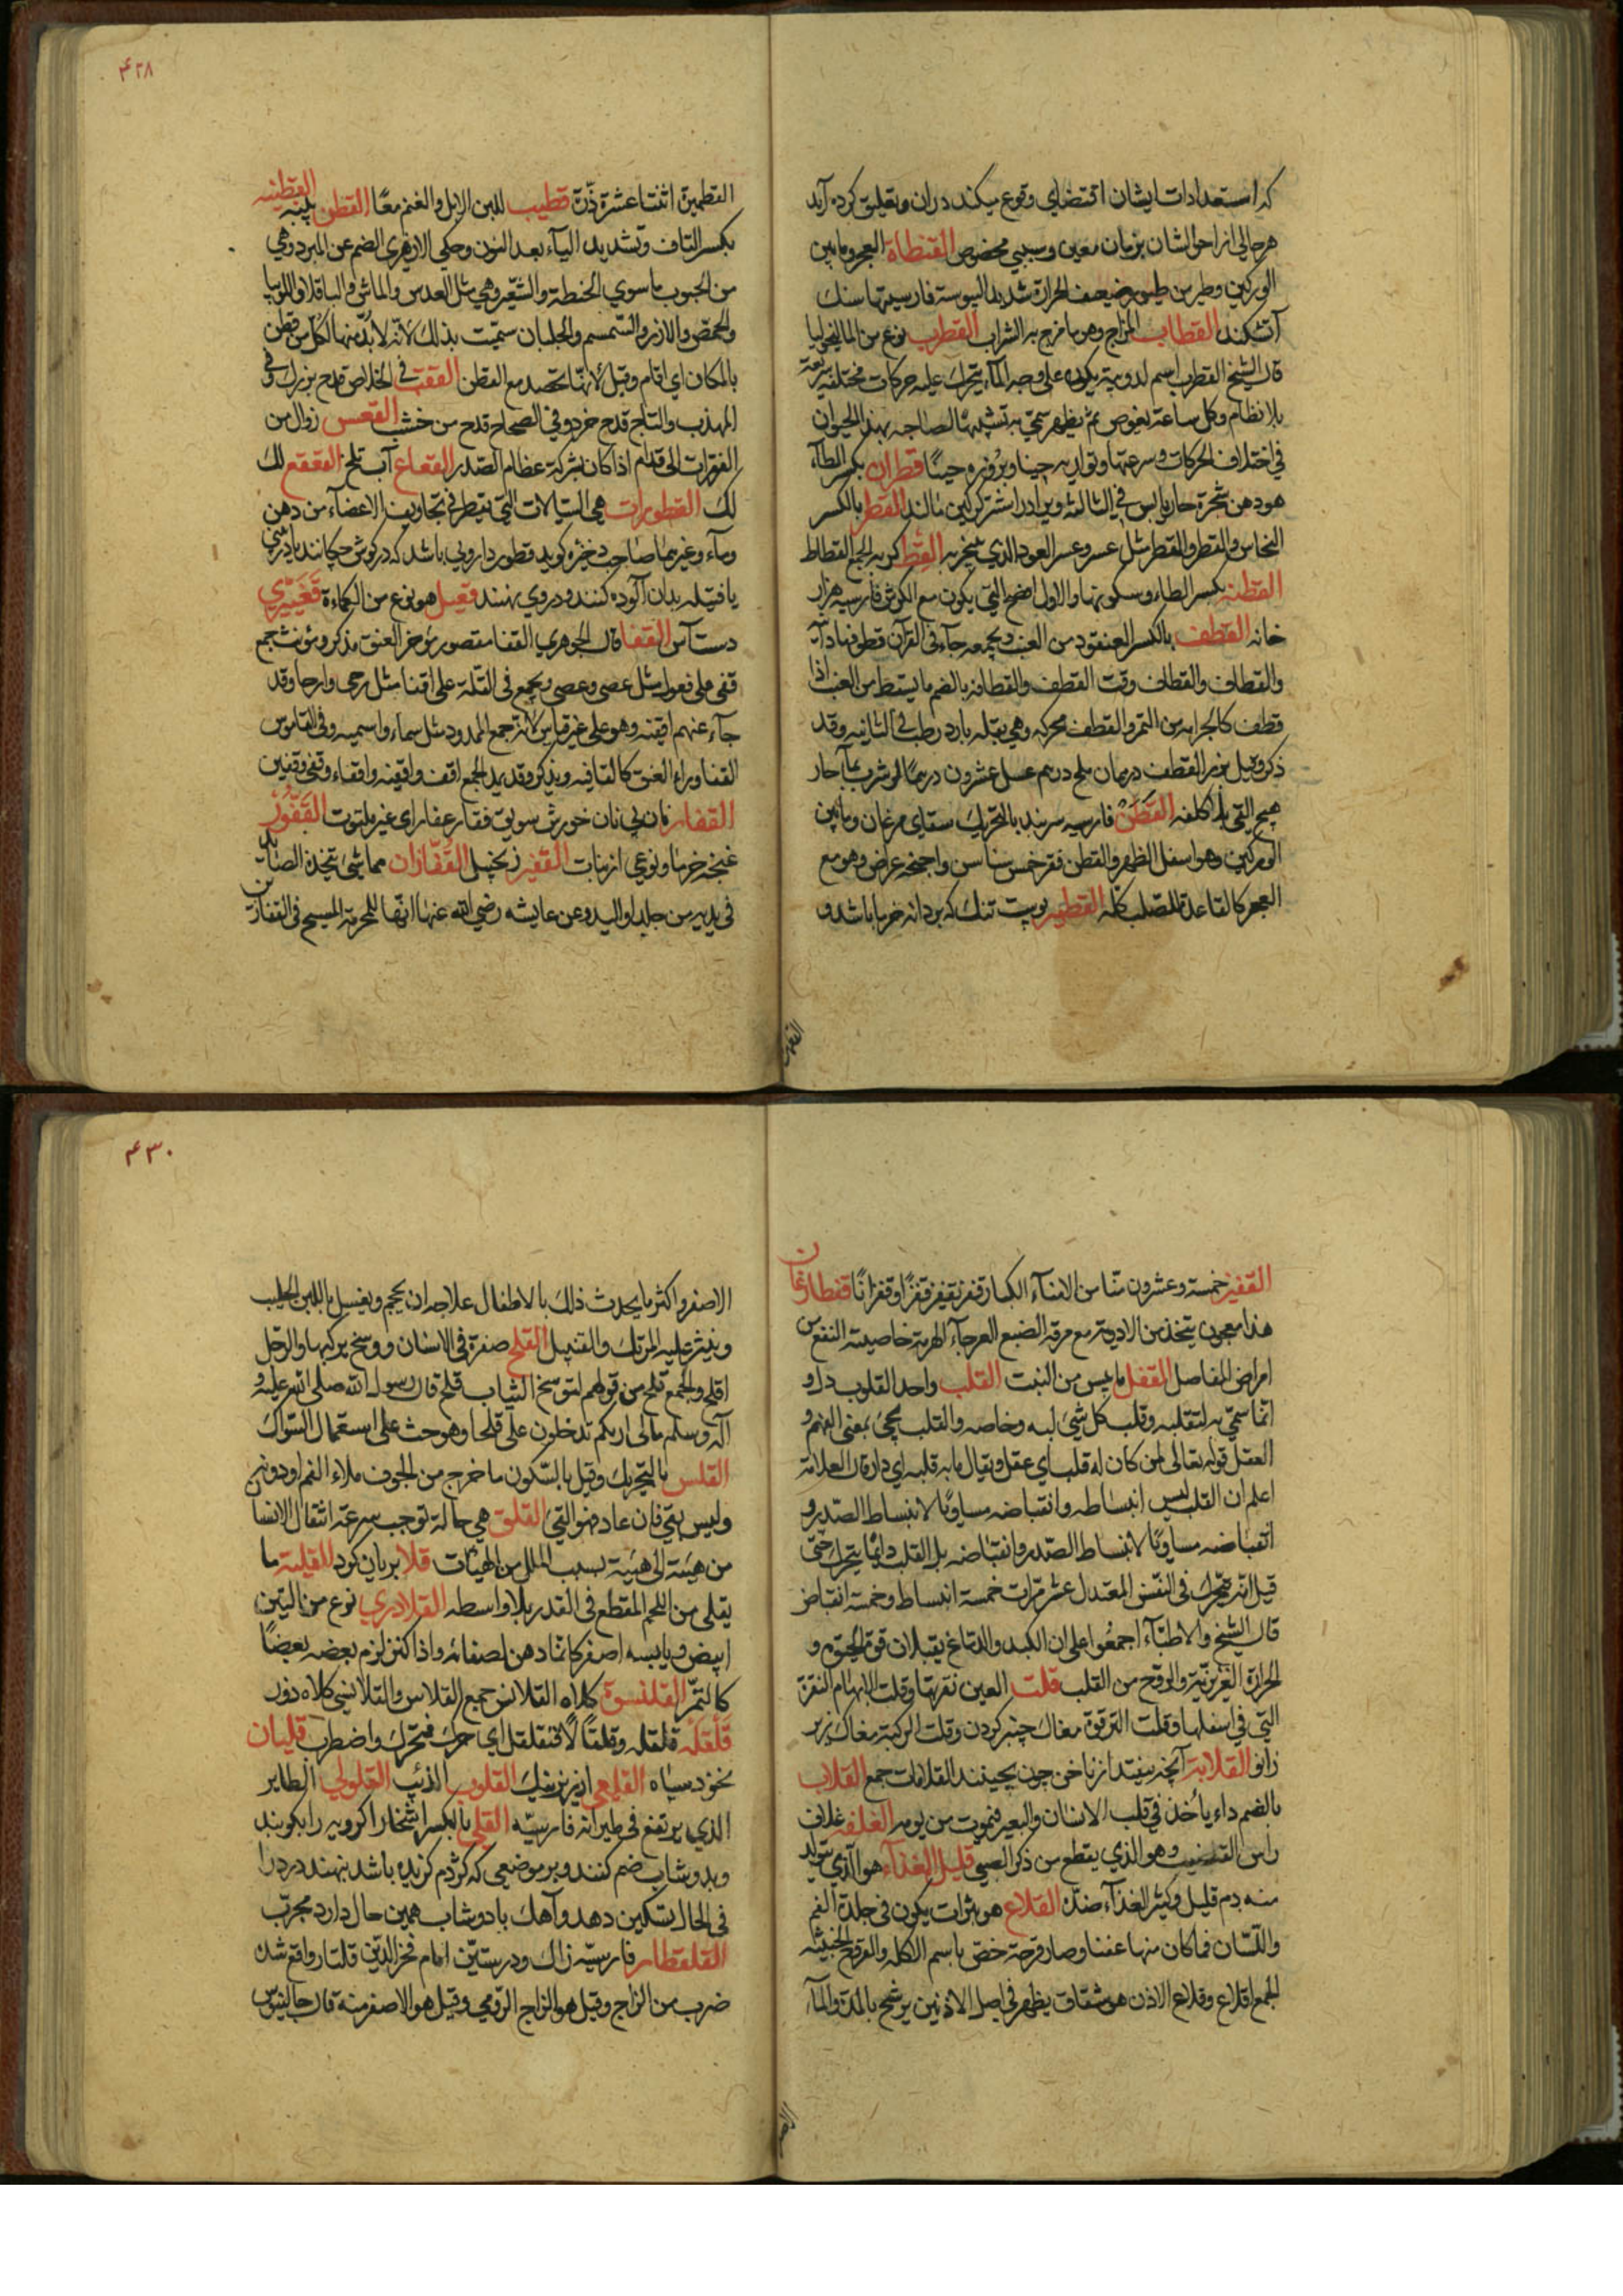 که استعدادات ایشان اقتضای وقوع میکند دران و تعلیق کرده آید
هر حالی از احوالشان بزمان معین و سببی مخصوص القطاة العجز و مابین
الورکین وطیر من طیور ضعیف الحرارة شدید الیبوسة فارسیتها سنک
آتشکند القطاب المزاج وهو ما مزج به الشراب القطرب نوع من المالیخولیا
قال الشیخ القطرب اسم لدویبة یکون علی وجه الماء یتحرک علیه حرکات مختلفة سریعة
بلا نظام وکل ساعة یغوص ثم یظهر سمّی به تشبیها لصاحبه بهذا الحیوان
فی اختلاف الحرکات وسرعتها وتواریه حینا وبروزه حینا قطران بکسر الطاء
هو دهن شجرة حار یابس فی الثالثة القطر بالکسر
النحاس والقطر والقطر مثل عسر وعسر العود الذی یتبخر به القط کربه الجمع القطاط
القطنة بکسر الطاء وسکونها والاول افصح التی یکون مع الکرش فارسیه هزار
خانه القطف بالکسر العنقود من العنب وبجمعه جاء فی القرآن قطوفها دانیة
والقطاف والقطاف وقت القطف والقطافة بالضم ما یسقط من العنب اذا
قطف کالجرامة من التمر والقطف محرکه وهی بقله بارد رطب فی الثانیه وقد
ذکر وقیل بزر القطف درهمان ملح درهم عسل عشرون درهما لو شرب بماء حار
هیج القی القطن فارسیه سرنبه بالتحریک ستقای مرغان ومابین
الورکین وهو اسفل الظهر والقطن فقر خمس سناسن واجنحة عراض وهو مع
العجز کالقاعدة للصلب کلّه القطمیر پوست تنک که بر دانه خرما باشد و
القط
۴۲۸
القطمیرة اثنتا عشرة ذرّة قطیب للبن الابل والغنم معًا القطن پنبه القطنیه
بکسر القاف وتشدید الیآء بعد النون وحکی الازهری الضم عن المبرد وهی
من الحبوب ما سوی الحنطة والشعیر وهی مثل العدس والماش والباقلا واللوبیا
والحمص والارز والسمسم والجلبان سمّیت بذلک لانّه لا بُدّ منها لکلّ من قطن
بالمکان ای اقام وقیل لانها تحصد مع القطن القعب فی الخلاص قدح بزرک وفی
المهذب والتاج قدح خرد وفی الصحاح قدح من خشب القعس زوال من
الفقرات الی قدام اذا کان بشرکة عظام الصدر القعاع آب تلخ القعقع لک
لک القطورات هی السیالات التی تقطر فی تجاویف الاعضآء من دهن
ومآء وغیرهما صاحب ذخیره کوید قطور دارویی باشد که در کوش چکانند یا در بینی
یا فتیله بدان آلوده کنند ودروی نهند قعبل هو نوع من الکماءة
دست آس القفا قال الجوهری القفا مقصور مؤخر العنق مذکر ومؤنث جمع
قفی علی فعول مثل عصی وعصی ویجمع فی القلة علی اقفا مثل رحی وارحا وقد
جآء عنهم اقفیه وهو علی غیر قیاس لانه جمع الممدود مثل سماء واسمیه وفی القاموس
القفا وراء العنق کالقافیه ویذکر وقد یمد الجمع اقف واقفیه واقفاء وقفی وقفین
القفار نان بی نان خورش سویق فقار عفار ای غیر ملتوت القفّور
غنچه خرما ونوعی از نبات القفیز زنجبیل القفّازان مما شئ یتخذه الصّایدین
فی یدیه من جلد او الید وعن عایشه رضی الله عنها انّها للمحرمة المسح فی القفازین
القفیز خمسة وعشرون منّا من الامناء الکبار قفز یقفز قفزا وقفزانًا قفطارغان
هذا معجون یتخذ من الادویة مع مرقه الضبع العرجآء الهرمة خاصیته النفع من
امراض المفاصل القفل ما یبس من النبت القلب واحد القلوب دل و
انّما سمّی به لتقلبه وقلب کل شئ لبه وخاصه والقلب یجئ بمعنی الفهم و
العقل قوله تعالی لمن کان له قلب ای عقل ویقال ما به قلبه ای دار قال العلامة
اعلم ان القلب لیس انبساطه وانقباضه مساویًا لانبساط الصّدر و
انقباضه مساویًا لانبساط الصّدر وانقباضه بل القلب دایمًا یتحرک حتی
قیل انّه یتحرک فی النفس المعتدل عشر مرّات خمسة انبساط وخمسة انقباض
قال الشیخ والاطبّآء اجمعوا علی ان الکبد والدّماغ یقبلان قوة الحیوة و
الحرارة الغریزیّة والروح من القلب قلت العین نقرتها وقلت الابهام النقرة
التی فی اسفلها وقلت الترقوة مغاک چنبر کردن وقلت الرکبة مغاک زیر
زانو القلامة آنچه بیفتد از ناخن چون بچینند القلامات جمع القلاب
بالضم داء یأخذ فی قلب الانسان والبعیر فیموت من یومه الغلفه غلاف
راس القضیب وهو الذی یقطع من ذکر الصبی قلیل الغذآء هو الذی یتولد
منه دم قلیل وکثیر الغذآء ضدّه القلاع هو بثرات یکون فی جلدة الفم
واللّسان فما کان منها عفنا وصار قرحة خصّ باسم الاکله والقروح الخبیثه
الجمع اقلاع وقلاع الاذن هو شقاق یظهر فی اصل الاذنین یرشح بالمدّة والمآء
الاصفر
۴۳۰
الاصفر واکثر ما یحدث ذلک بالاطفال علاجه ان یحجم ویغسل باللبن الحلیب
وینثر علیه المرتک والقنبیل القلح صفرة فی الاسنان ووسخ یرکبها والرّجل
اقلح والجمع قلح من قولهم لمتوسخ الثیاب قلح قال رسول الله صلی الله علیه و
آله وسلم ما لی اریکم تدخلون علی قلحا وهو حث علی استعمال السّواک
القلس بالتحریک وقیل بالسّکون ما خرج من الجوف ملاء الفم او دونه
ولیس بقئ فان عاد فهو القئ القلق هی حالة توجب سرعة انتقال الانسان
من هیئة الی هیئة بسبب الملل من الهیئات قلا بریان کرد القلیة ما
یقلی من اللحم المقطع فی القدر بلا واسطه القلادری نوع من التین
ابیض ویابسه اصفر کانّما دهن لصفائه واذا کنز لزم بعضه بعضًا
کالتمر القلنسوة کلاه القلانس جمع القلاس والقلانسی کلاه دوز
قلقلة قلقله وقلقالًا فتقلقل ای حرک فتحرک واضطرب قلیان
نخود سیاه القلعی ارزیز نیک القلوب الذئب القلولی الطایر
الذی یرتفع فی طیرانه فارسیّه القلی بالکسر اشخار اکر وبه را بکوبند
وبدوشاب ضم کنند وبر موضعی که کژدم کزیده باشد بنهند درد را
فی الحال تسکین دهد وآهک با دوشاب همین حال دارد مجرّب
القلقطار فارسیّه زاک ودر ستیّن امام فخر الدّین قلتار واقع شده
ضرب من الزاج وقیل هو الزاج الرّومی وقیل هو الاصفر منه قال جالینوس